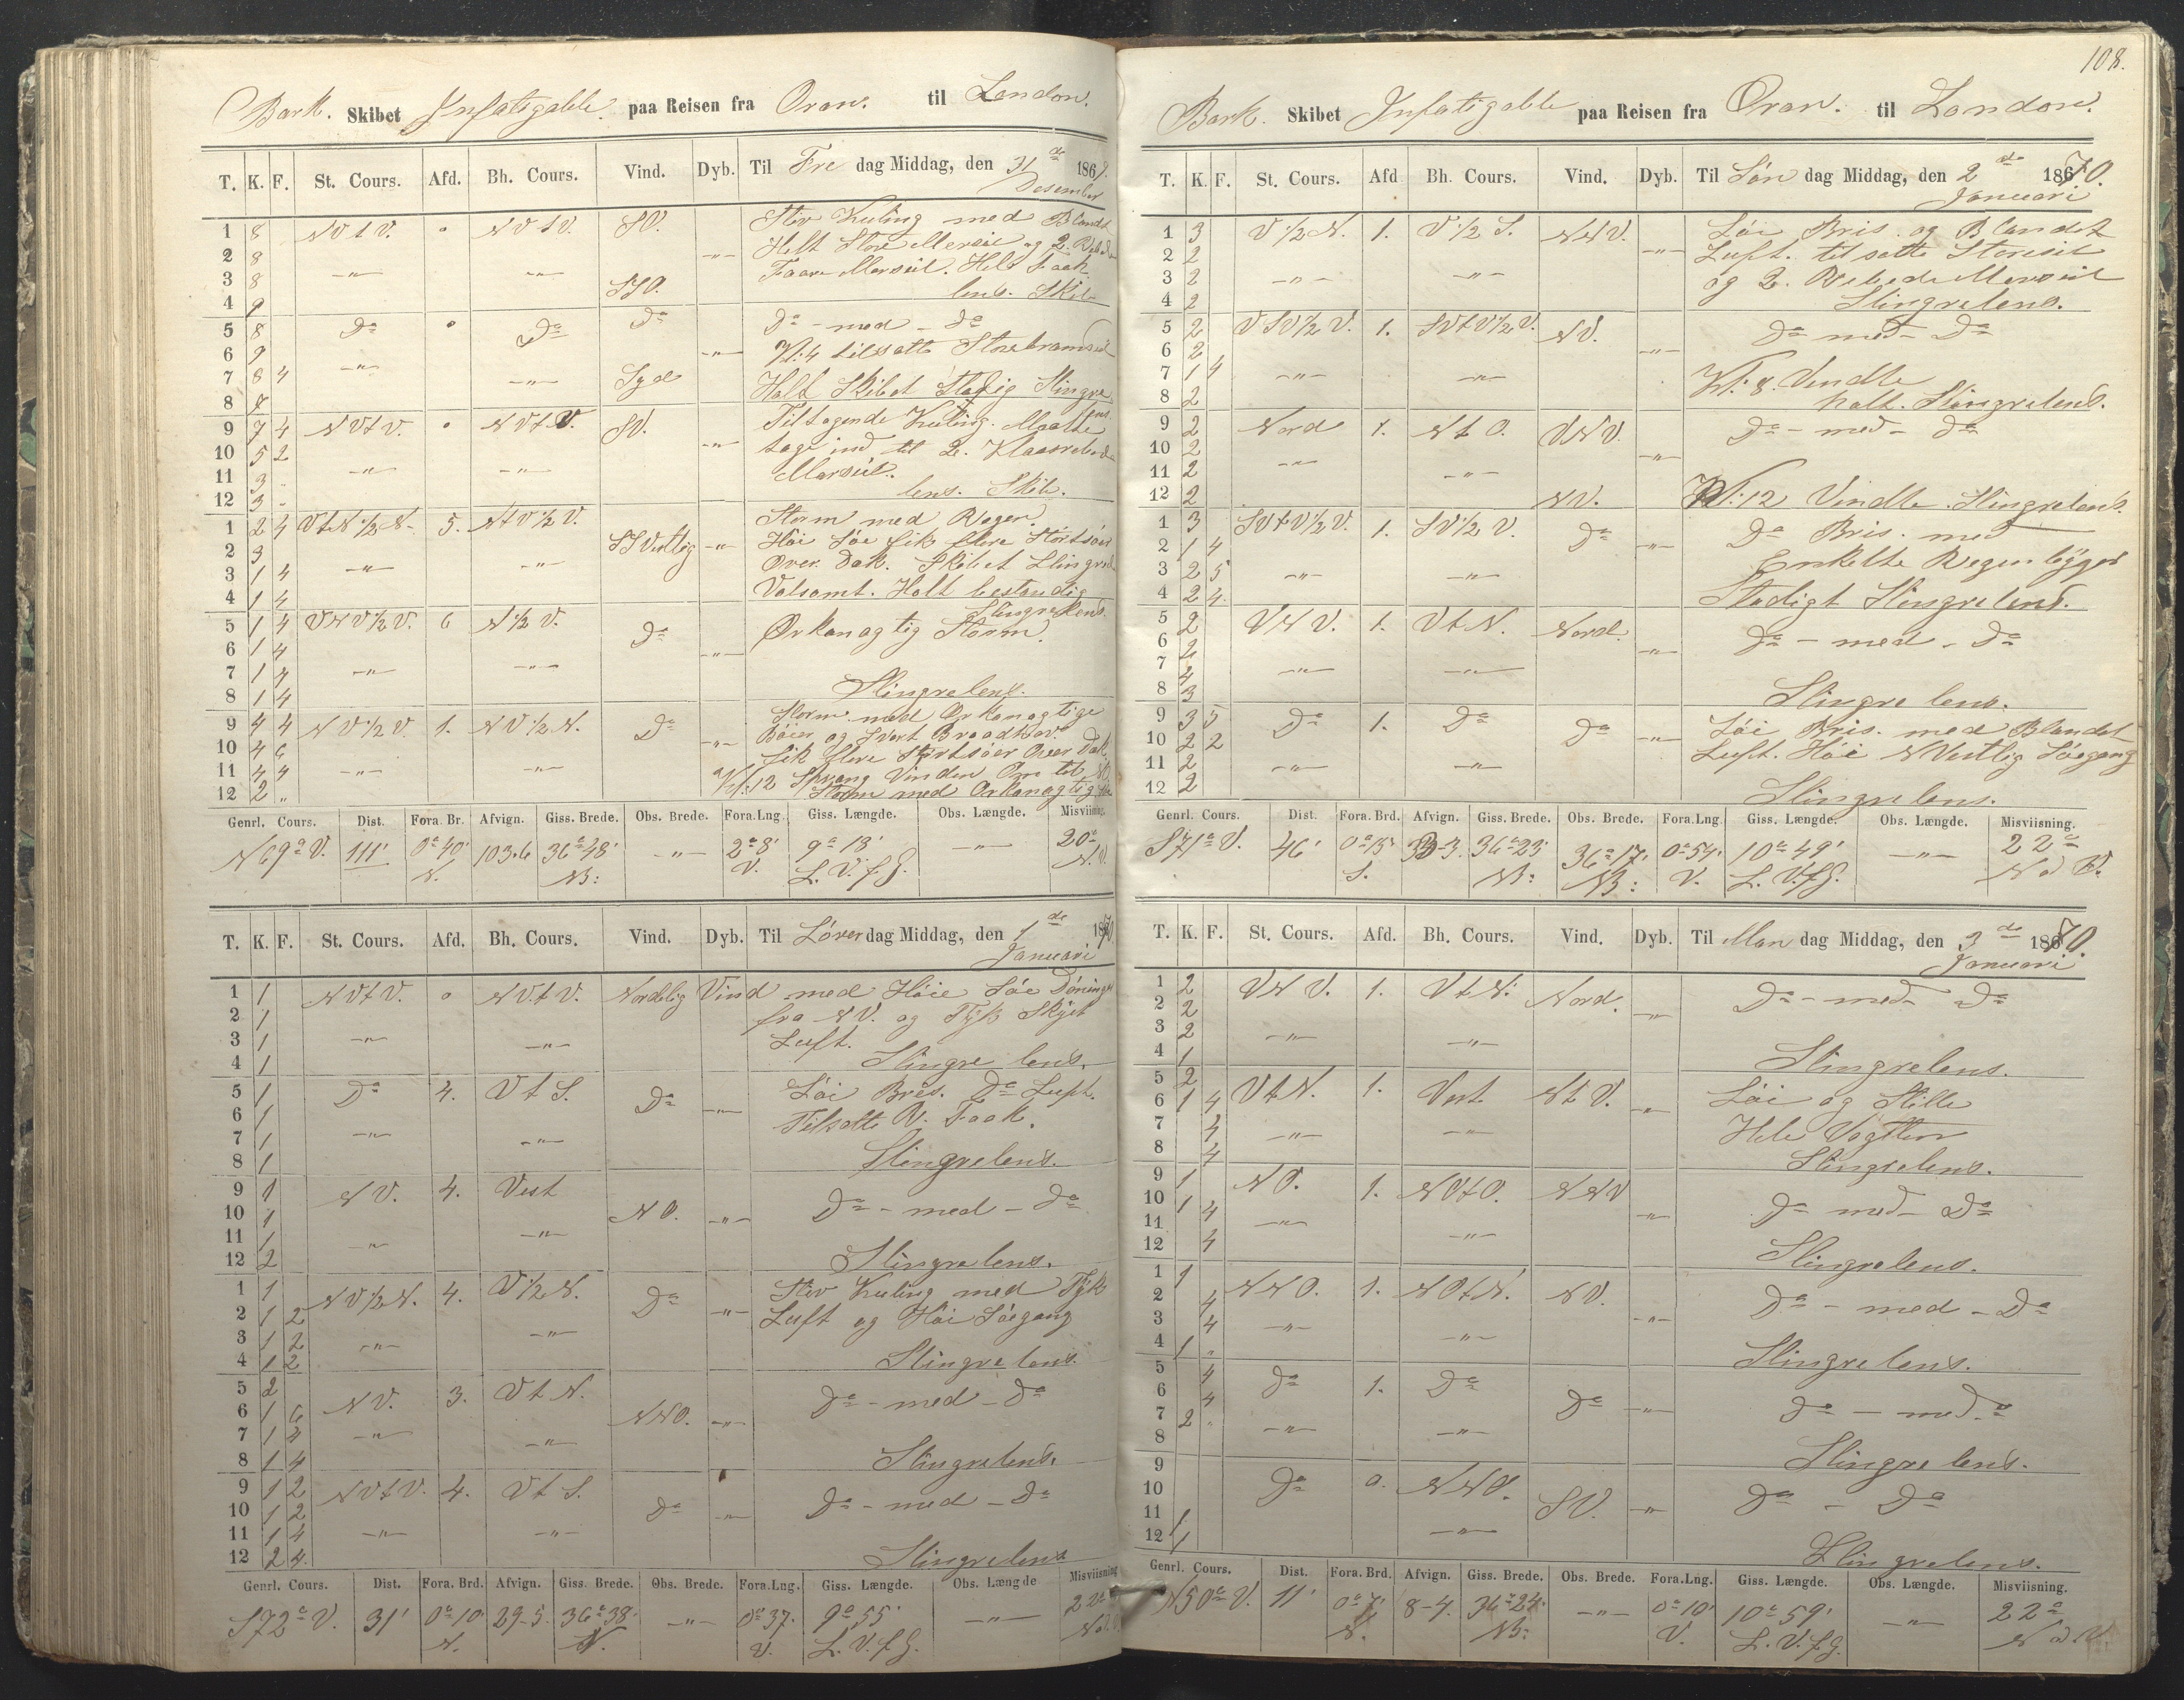 Bark. Skibet Infatigable. paa Reisen fra Oran. til London.
T. K. F. St. Cours. Afd. Bh. Cours. Vind. Dyb. Til Fre dag Middag, den 31 de 1869.
Desember
1 8 NVtV. 0 NVtV. SV. Stiv Kuling med Blandt
2 8 Helt Store Merseil og 2. Rebede
3 8 -"- -"- -"- Faare Merseil. Helt Faak.
4 9 SSV. lens. Skib
5 8 Do 0 Do Do Do - med - Do
6 9 -"- Kl: 4 tilsatte Storebramseil
7 8 4 -"- -"- Syd Holt Skibet Stadig Slingre
8 8 lens.
9 7 4 NVtV. 0 NVtV. SV. Tiltagende Kuling. Maatte
10 5 2 -"- tage ind til 2. Klaasrebede
11 3 " -"- -"- Merseil.
12 3 " lens. Skib.
1 2 4 VtN 1/2 N. 5. NtV 1/2 V. Storm med Regen.
2 3 SSVestlig -"- Höi Söe fik flere Störtsöer
3 1 4 -"- -"- Over Dæk. Skibet Slingred
4 1 4 Volsomt. Holt bestandig
Slingrelens.
5 1 4 VNV 1/2 V. 6 N 1/2 V. Do Orkanagtig Storm.
6 1 4 -"-
7 1 4 -"- -"-
8 1 4 Slingrelens.
9 4 4 NV 1/2 V. 1. NV 1/2 N. Do Storm med Orkanagtige
10 4 6 -"- Böier og Svert Braadtsöe.
11 4 4 -"- -"- fik flere Stortsöer Over Dæk
12 2 " Kl: 12 Sprang Vinden Om til NV.
Storm med Orkanagtig
Genrl. Cours. Dist. Fora. Br. Afvign. Giss. Brede. Obs. Brede. Fora.Lng. Giss. Længde. Obs. Længde. Misviisning.
N 69° V. 111' 0° 40' 103.6 36° 48' -"- 2° 8' 9° 18' -"- 20°
N. NB: V. L. V. f G. N. V.
T. K. F. St. Cours. Afd. Bh. Cours. Vind. Dyb. Til Löver dag Middag, den 1 de 1870.
Januari
1 1 NVtV. 0 NVtV. Nordelig Vind med Höie Söe Döninger
2 1 fra NV. og Tÿk Skÿet
3 1 -"- -"- Luft.
4 1 Slingre lens.
5 1 Do 4. VtS. Do -"- Löi Bris. Do Luft.
6 1 Tilsatte R. Faak.
7 1 -"- -"-
8 1 Slingrelens.
9 1 NV. 4. Vest
10 1 NO. -"- Do - med - Do
11 1 -"- -"-
12 2 Slingrelens.
1 1 NV 1/2 N. 4. V 1/2 N. Do -"- Stiv Kuling med Tÿk
2 1 2 Luft og Höi Söegang
3 1 2 -"- -"-
4 1 2 Slingre lens.
5 2 NV. 3. VtN. Do - med - Do
6 1 6 NNO. -"-
7 1 4 -"- -"-
8 1 4 Slingrelens.
9 1 2 NVtV. 4. VtS. Do - med - Do
10 1 2 Do -"-
11 1 4 -"- -"-
12 2 4. Slingrelens
Genrl. Cours. Dist. Fora. Brd. Afvign. Giss. Brede. Obs. Brede. Fora.Lng. Giss. Længde. Obs. Længde Misviisning
S 72° V. 31' 0° 10' 29-5. 36° 38' -"- 0° 37' 9° 55' -"- 22°
N. N. V. L. V. f G.
108.
Bark. Skibet Infatigable paa Reisen fra Oran. til London.
T. K. F. St. Cours. Afd Bh. Cours. Vind. Dyb. Til Søn dag Middag, den 2 de 1870.
Januari
1 3 V 1/2 N. 1. V 1/2 S. NNV. -"- Löi Bris. og Blandet
2 2 Luft. tilsatte Storeseil
3 2 -"- -"- og 2. Rebede Merseil
4 2 Slingrelens.
5 2 VSV 1/2 V. 1. SVtV 1/2 V. NV. Do - med - Do
6 2 -"-
7 1 4 -"- -"- Kl: 8. Vendte
8 2 holt. Slingrelens.
9 2 Nord 1. NtO. VNV. Do - med - Do
10 2 -"-
11 2 -"- -"-
12 2 NV. Kl: 12 Vendte. Slingrelens.
1 3 SVtV 1/2 V. 1. SV 1/2 V. Do -"- Do Bris. med
2 1 4 Enkelte Regenbÿger
3 2 5 -"- -"-
4 2 4. Stadigt Slingrelens.
5 2 VNV. 1. VtN. Nord. Do - med - Do
6 2 -"-
7 4 -"- -"-
8 3 Slingre lens.
9 3 5 Do 1. Do Do -"- Löi Bris. med Blandet
10 2 2 Luft. Höi NVestlig Söegang
11 2 -"- -"-
12 2 Slingre lens.
Genrl. Cours. Dist. Fora. Brd. Afvign. Giss. Brede. Obs. Brede. Fora.Lng. Giss. Længde. Obs. Længde. Misviisning.
S 71° V. 46' 0° 15' 33-3. 36° 23' 36° 17' 0° 54' 10° 49' -"- 22°
S. NB: NB: V. L. V. f G.
T. K. F. St. Cours. Afd. Bh. Cours. Vind. Dyb. Til Man dag Middag, den 3 de 1870.
Januari
1 2 VNV. 1. VtN. Nord. Do - med - Do
2 2 -"-
3 2 -"- -"-
4 1 Slingrelens.
5 2 VtN. 1. Vest NtV. Löi og Stille
6 1 4 -"- Hele Vagten
7 4 -"- -"-
8 4 Slingrelens.
9 1 NO. 1. NOtO. NNV Do - med - Do
10 1 4 -"-
11 -"- -"-
12 4 Slingrelens.
1 1 NNO. 1. NOtN. NV. Do - med - Do
2 4 -"-
3 4 -"- -"-
4 1 " Slingrelens.
5 4 Do 1. Do
6 4 Do -"- Do - med - Do
7 2 " -"- -"-
8 Slingre lens.
9 Do 0. NNO.
10 SV. -"- Do - Do
11 1 -"-
12 1 Slingrelens.
Genrl. Cours. Dist. Fora. Brd. Afvign. Giss. Brede. Obs. Brede. Fora.Lng. Giss. Længde. Obs. Længde. Misviisning.
N 50° V. 11' 0° 7' 8-4. 36° 24' -"- 0° 10' 10° 59' -"- 22°
N. NB: V. L. V. f G.